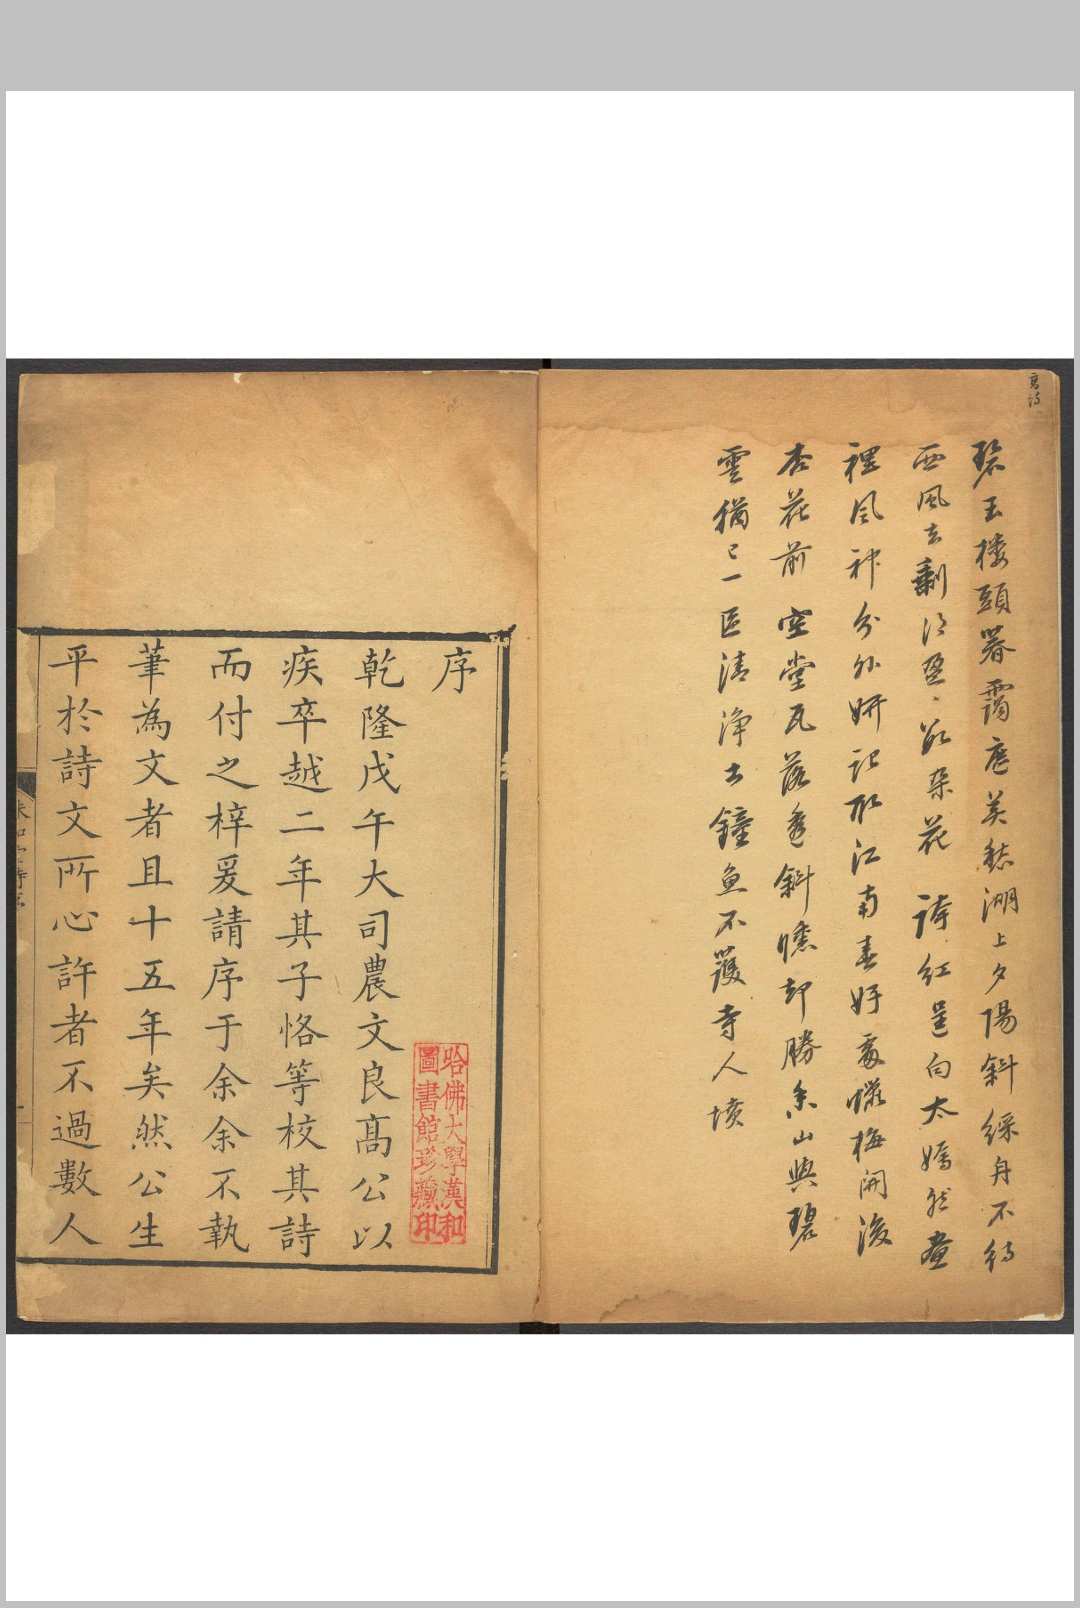 碧玉楼頭暮靄遮莫愁湖上夕陽斜綵舟不待
西風去剩得盈、数朵花 誇紅逞白太嫣然畫
裡風神分外妍記取江南春好處蠟梅開後
杏花前 空堂瓦落透斜曛却勝香山與碧
雲猶是一區清淨土鐘魚不護寺人墳
序
乾隆戊午大司農文良髙公以
疾卒越二年其子恪等校其詩
而付之梓爰請序于余余不執
筆為文者且十五年矣然公生
平於詩文所心許者不過數人
哈佛大學漢和
圖書館珍藏印